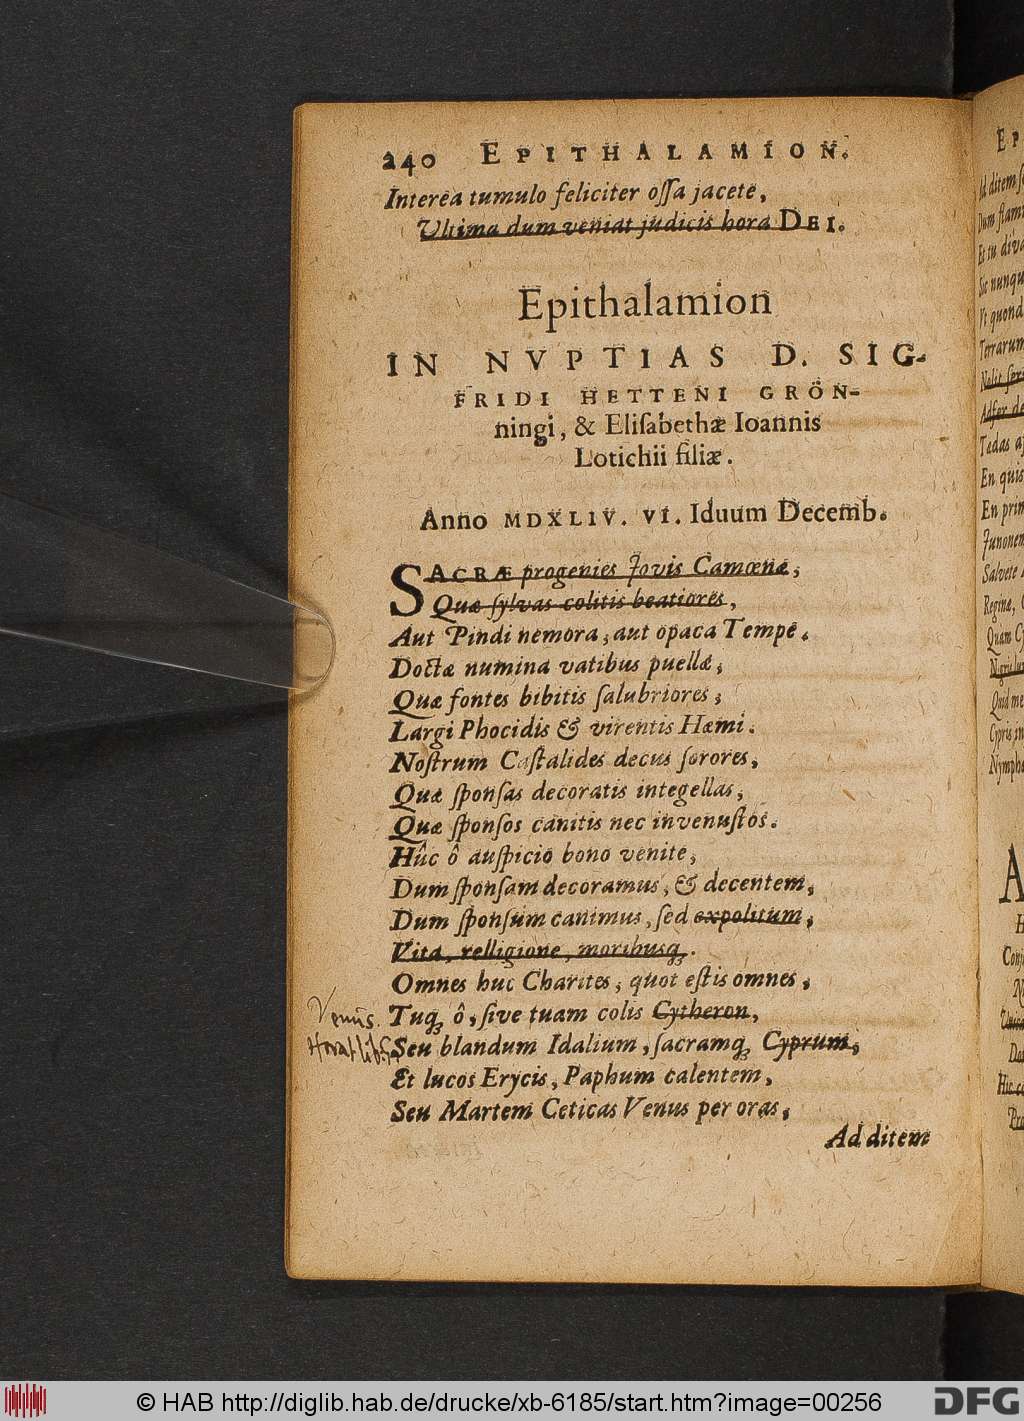 240 EPITHALAMION.
Interea tumulo feliciter oſſa jacete,
Ultima dum veniat judicis hora DEI.
Epithalamion
IN NVPTIAS D. SIG-
FRIDI HETTENI GRÖN-
ningi, & Eliſabethæ Ioannis
Lotichii filiæ.
Anno MDXLIV. VI. Iduum Decemb.
SACRÆ progenies Jovis Camœnæ,
Quæ ſylvas colitis beatiores,
Aut Pindi nemora, aut opaca Tempe.
Doctæ numina vatibus puellæ,
Quæ fontes bibitis ſalubriores,
Largi Phocidis & virentis Hæmi.
Noſtrum Caſtalides decus ſorores,
Quæ ſponſas decoratis integellas,
Quæ ſponſos canitis nec invenuſtos.
Hûc ô auſpicio bono venite,
Dum ſponſam decoramus, & decentem,
Dum ſponſum canimus, ſed expolitum,
Vita, relligione, moribusq́.
Omnes huc Charites, quot eſtis omnes,
Venus. Tuq́ ô, ſive tuam colis Cytheron,
Horat lib. Seu blandum Idalium, ſacramq́ Cyprum,
Et lucos Erycis, Paphum calentem,
Seu Martem Ceticas Venus per oras,
Ad ditem
EP
Ad ditem
Dum flam
Et tu diva
Sic nunqu
Vt quond
Terrarum
Adſer de
Tædas
En quis
En prim
Junonem
Salvete
Reginæ,
Quam
Quid me
Cypris
Nympha
A
© HAB http://diglib.hab.de/drucke/xb-6185/start.htm?image=00256
DFG